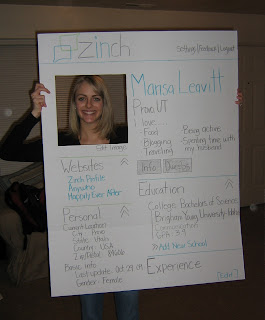 zinch
Settings | Feedback | Logout
Marisa Leavitt
Provo, UT
I love...
Food Being active
Blogging Spending time with
Traveling my husband
Info
Websites
Zinch Profile
Happily Ever Alder
Education
College: Bachelors of Science
Brigham Young University-Idaho
Communication
GPA: 3.9
Add New School
Personal
Current Location
City: Provo
State: Utah
Country: USA
Basic Info
Last update: Oct 29, 09
Gender: Female
Experience